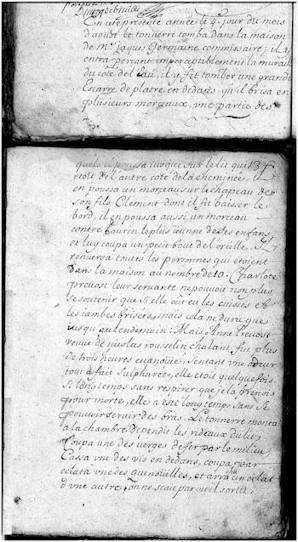 En cete presente année le 4 jour du mois
d'aoust le tonnerre tomba dans la maison
de Mr Jaques Germaine commissaire; il y
entra perçant imperceptiblement la muraille
du côté de l'eau, il y fit tomber une grande
Escarre de platre en dedans qu'il brisa en
plusieurs morceaux, une partie des
quels il poussa jusque sur le lit qui
étoit de l'autre côté de la cheminée, il
en poussa un morceau sur le chapeau de
son fils Clement dont il fit baisser le
bord, il en poussa aussi un morceau
contre le plus jeune de ses enfans
et luy coupa un petit bout de l'oreille. Il
renversa toutes les personnes qui étoient
dans la maison au nombre de 10. Charlote
prevost leur servante ne pouvoit non plus
se soutenir que si elle eût eu les cuisses et
les iambes brisées mais cela ne dura que
iusqu'au lendemain: Mais Anne Prevost
veuve de nicolas rousselin chalant fut plus
de trois heures evanouïe, sentant une odeur
tout à fait sulphurée, elle étoit quelquefois
si longtemps sans respirer que je la prenois
pour morte, elle a été longtemps sans se
pouvoir servir des bras. Le tonnerre monta
a la chambre dépendit les rideaux du lit,
coupa une des verges de fer par le milieu
cassa une des vis en dedans, coupa par
eclats une des quenouilles, et arracha un eclat
d'une autre, on ne scait par où il sortit.